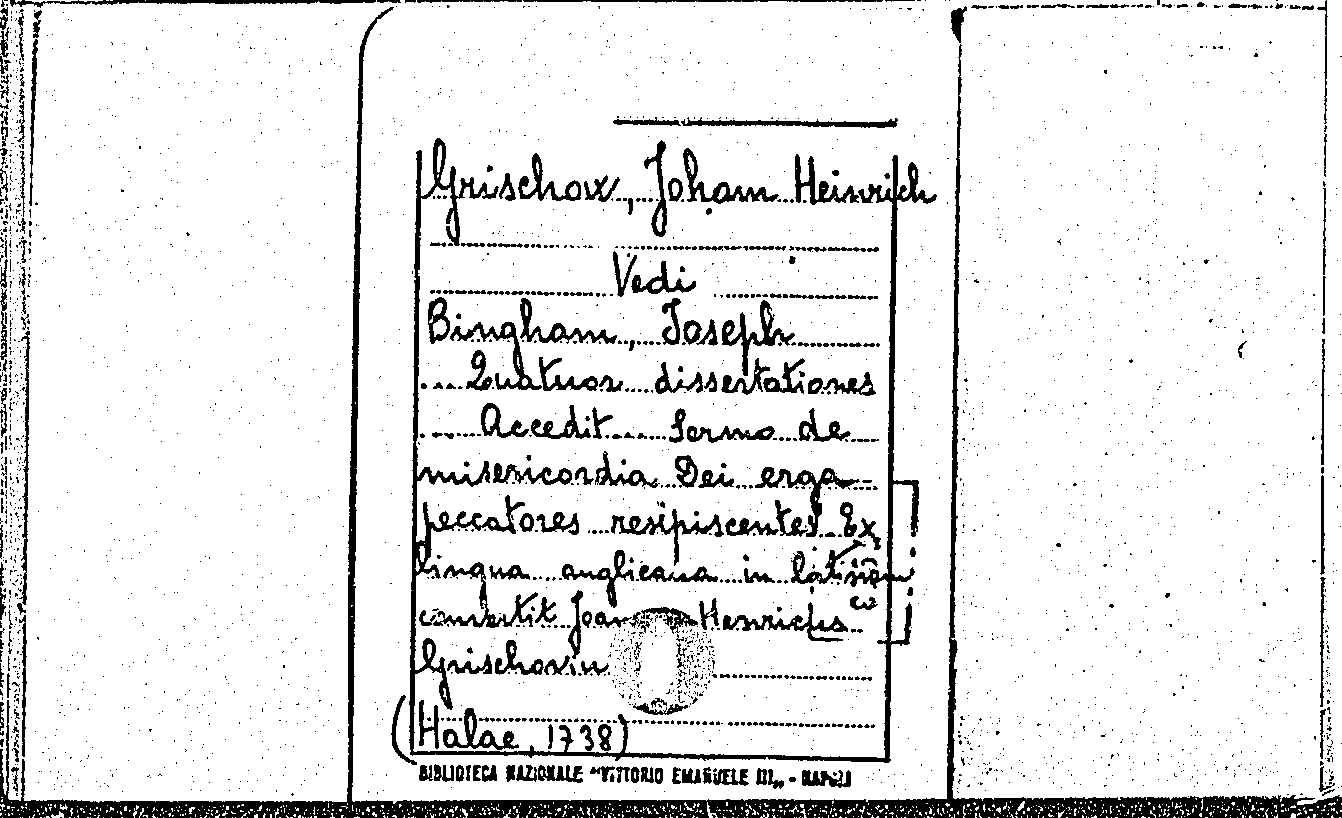 Grischow, Joham Heinrich
Vedi
Bingham, Joseph
... Quatuor dissertationes
... Accedit ... Sermo de
misericordia Dei erga
peccatores resipiscentes. Ex
lingua anglicana in
convertit Henrichs
Grischoviu
(Halae, 1738)
BIBLIOTECA NAZIONALE "VITTORIO EMANUELE III„ - NAPOLI